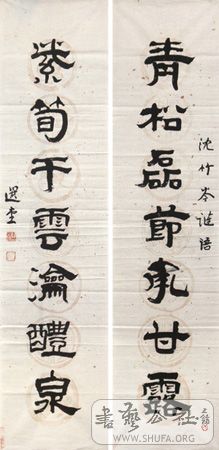 青松磊節承甘露
沈竹岑聯語
紫筍干雲瀹醴泉
選堂
書藝公社
WWW.SHUFA.ORG